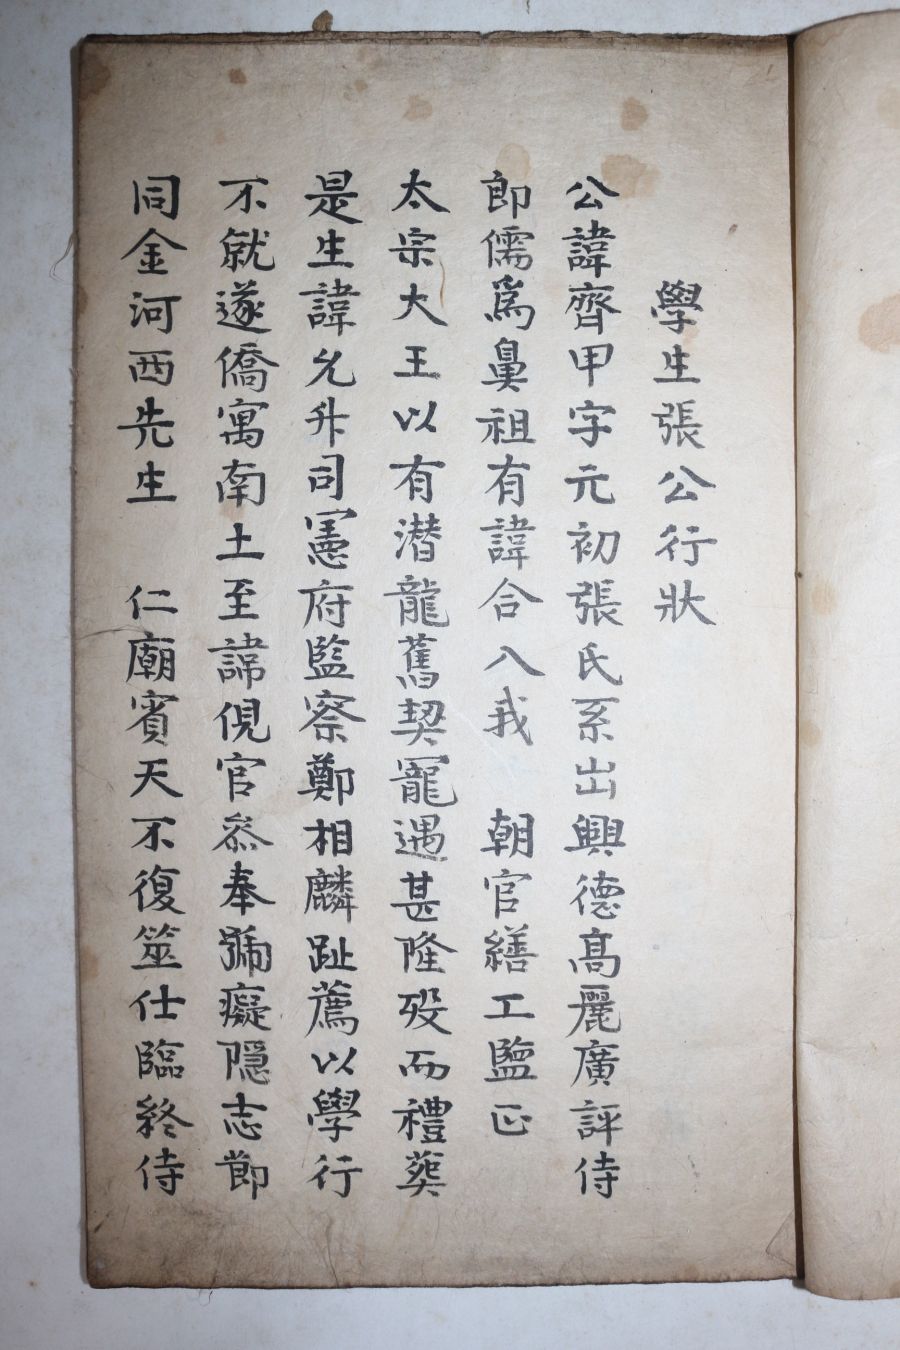 學生張公行狀
公諱齊甲字元初張氏系出興德高麗廣評侍
郎儒爲鼻祖有諱合入我 朝官繕工監正
太宗大王以有潛龍舊契寵遇甚隆歿而禮葬
是生諱允升司憲府監察鄭相麟趾薦以學行
不就遂僑寓南土至諱俔官叅奉號癡隱志節
同金河西先生 仁廟賓天不復筮仕臨終侍